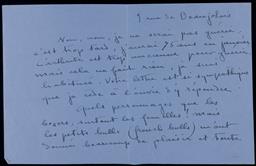 9 rue de Beaujolais
Non, non, je ne serai pas guérie,
c'est trop tard, j'aurai 75 ans en janvier
l'arthrite est trop ancienne, pour guérir
mais cela ne fait rien, je suis
habituée. Votre lettre est si sympathique
que je cède à l'envie d'y répondre.
Quels personnages que les
boxers, surtout les femelles ! Mais
les petits bulls (french bulls) m'ont
donné beaucoup de plaisir et toute